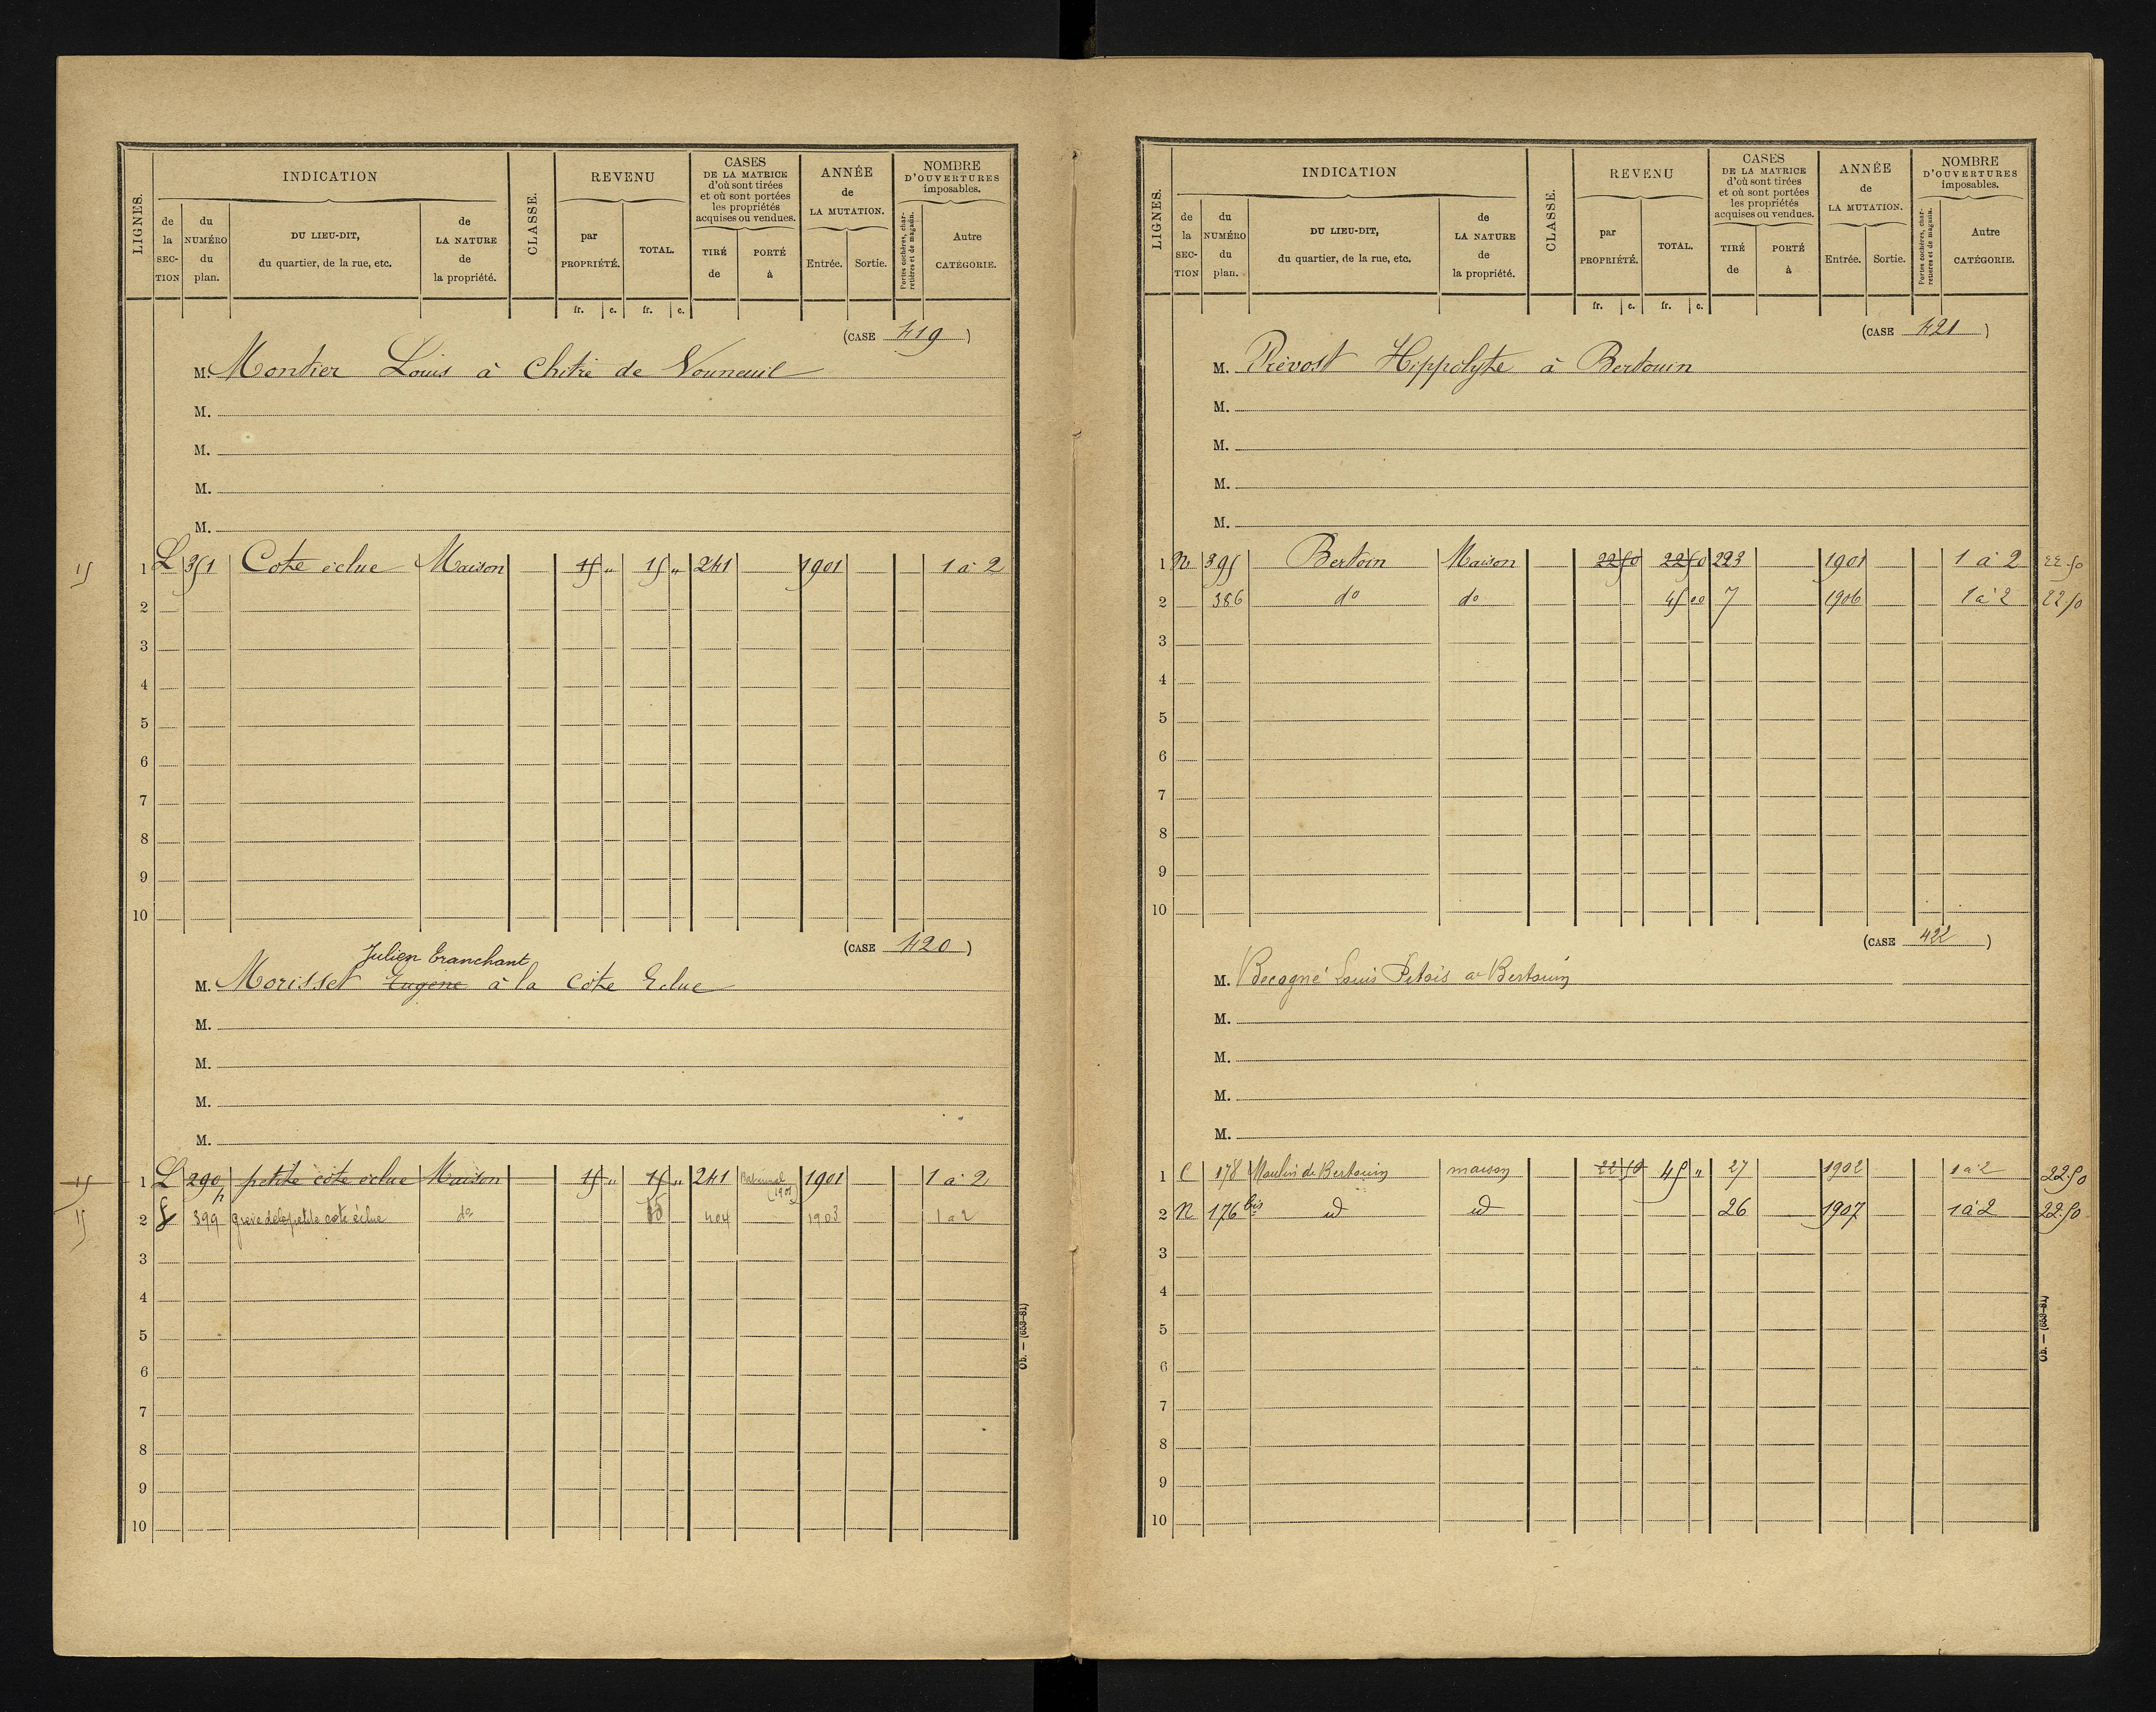 LIGNES.
INDICATION
CLASSE.
REVENU
CASES
DE LA MATRICE
d'où sont tirées
et où sont portées
les propriétés
acquises ou vendues.
ANNÉE
de
LA MUTATION.
NOMBRE
D'OUVERTURES
imposables.
de la SEC-TION
du NUMÉRO du plan.
DU LIEU-DIT,
du quartier, de la rue, etc.
de LA NATURE de la propriété.
par PROPRIÉTÉ.
TOTAL.
TIRÉ de
PORTÉ à
Entrée.
Sortie.
Portes cochères, char-retières et de magasin.
Autre CATÉGORIE.
fr. c. fr. c.
(CASE 419)
M. Montier Louis à Chitré de Vouneuil
M.
M.
M.
M.
15 1 L 351 Cote éclue Maison 15 " 15 " 241 1901 1 à 2
2
3
4
5
6
7
8
9
10
(CASE 420)
Julien Tranchant
M. Morisset Eugène à la Côte Eclue
M.
M.
M.
M.
15 1 L 290 petite côte éclue Maison 15 " 15 " 241 1901 1 à 2
15 2 399 greve de la petite cote éclue do 15 404 1903 1 à 2
3
4
5
6
7
8
9
10
Ob. — (653-81)
LIGNES.
INDICATION
CLASSE.
REVENU
CASES
DE LA MATRICE
d'où sont tirées
et où sont portées
les propriétés
acquises ou vendues.
ANNÉE
de
LA MUTATION.
NOMBRE
D'OUVERTURES
imposables.
de la SEC-TION
du NUMÉRO du plan.
DU LIEU-DIT,
du quartier, de la rue, etc.
de LA NATURE de la propriété.
par PROPRIÉTÉ.
TOTAL.
TIRÉ de
PORTÉ à
Entrée.
Sortie.
Portes cochères, char-retières et de magasin.
Autre CATÉGORIE.
fr. c. fr. c.
(CASE 421)
M. Prévost Hippolyte à Bertouin
M.
M.
M.
M.
1 N 395 Bertoin Maison 22 50 22 50 223 1901 1 à 2 22.50
2 386 do do 45 00 7 1906 1 à 2 22 50
3
4
5
6
7
8
9
10
(CASE 422)
M. Becogné Louis Petois a Bertouin
M.
M.
M.
M.
1 C 178 Moulin de Bertouin maison 22 50 45 " 27 1902 1 à 2 22.50
2 N 176 bis id id 26 1907 1 à 2 22.50
3
4
5
6
7
8
9
10
Ob. — (653-81)